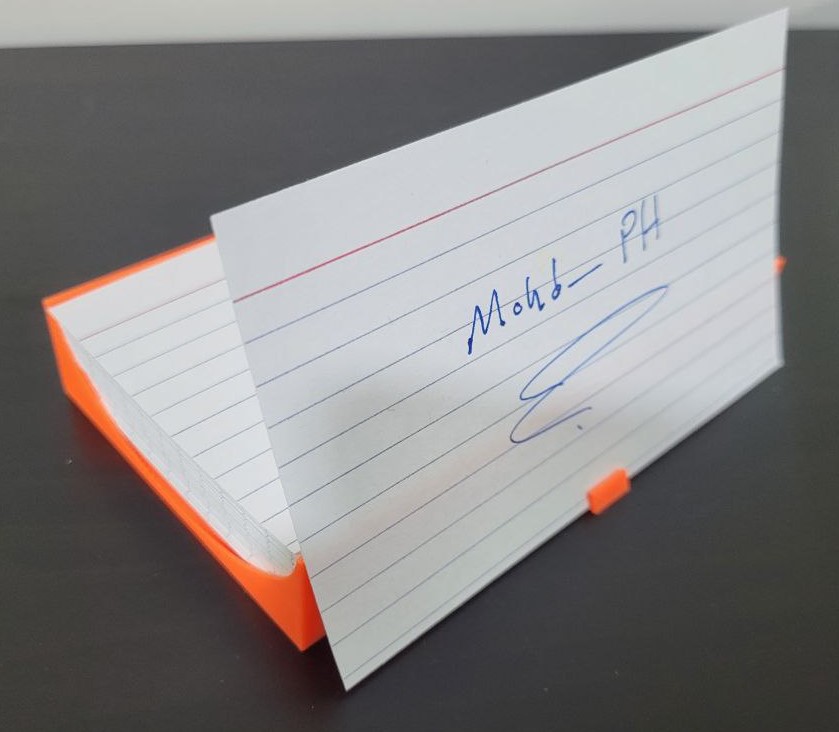 Mohd_ PH